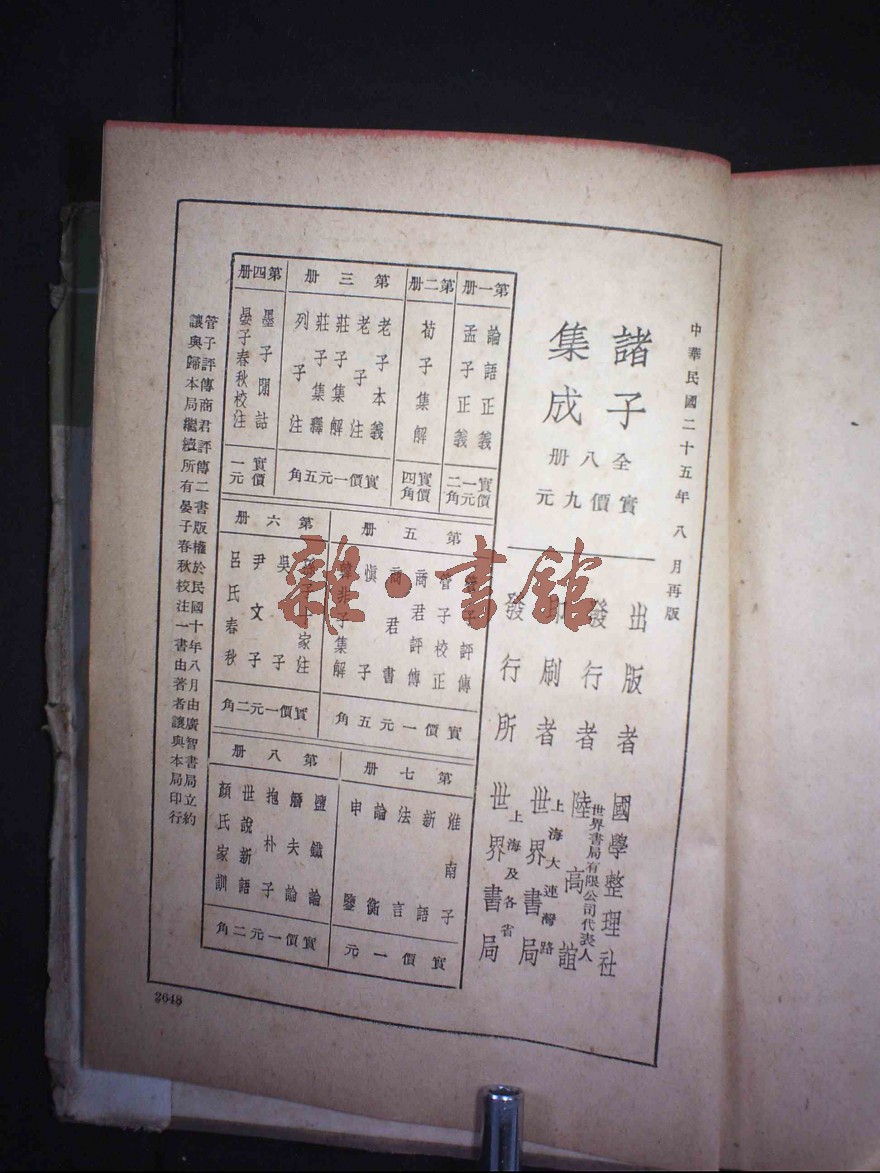 中華民國二十五年八月再版
諸子
集成
全八册
實價九元
出版者 國學整理社
發行者 世界書局有限公司代表人 陸高誼
印刷者 上海大連灣路 世界書局
發行所 上海及各省 世界書局
第一册
論語正義
孟子正義
實價一元二角
第二册
荀子集解
實價四角
第三册
老子本義
老子注
莊子集解
莊子集釋
列子注
實價一元五角
第四册
墨子閒詁
晏子春秋校注
實價一元
第五册
管子評傳
管子校正
商君評傳
商君書
愼子
韓非子集解
實價一元五角
第六册
孫子十家注
吳子
尹文子
呂氏春秋
實價一元二角
第七册
淮南子
新語
法言
論衡
申鑒
實價一元
第八册
鹽鐵論
潛夫論
抱朴子
世說新語
顏氏家訓
實價一元二角
管子評傳商君評傳二書版權於民國十年八月由廣智書局立約
讓與歸本局繼續所有晏子春秋校注一書由著者讓與本局印行
2648
雜·書館